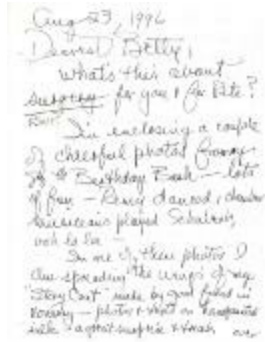 Aug 23, 1996
Dearest Betty,
What's this about
surgery for you & for Pete?
I'm enclosing a couple
of cheerful photos from
Birthday Bash — lots
of fun — danced, chamber
musicians played Schubert,
ooh la la —
In one of these photos I
am spreading the wings of my
"Story Coat" made by good friend in
— photos & on
silk — a great surprise & over